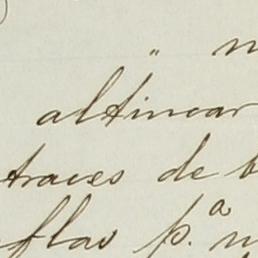 " n
altinoar
traces de b
flas p.ª n